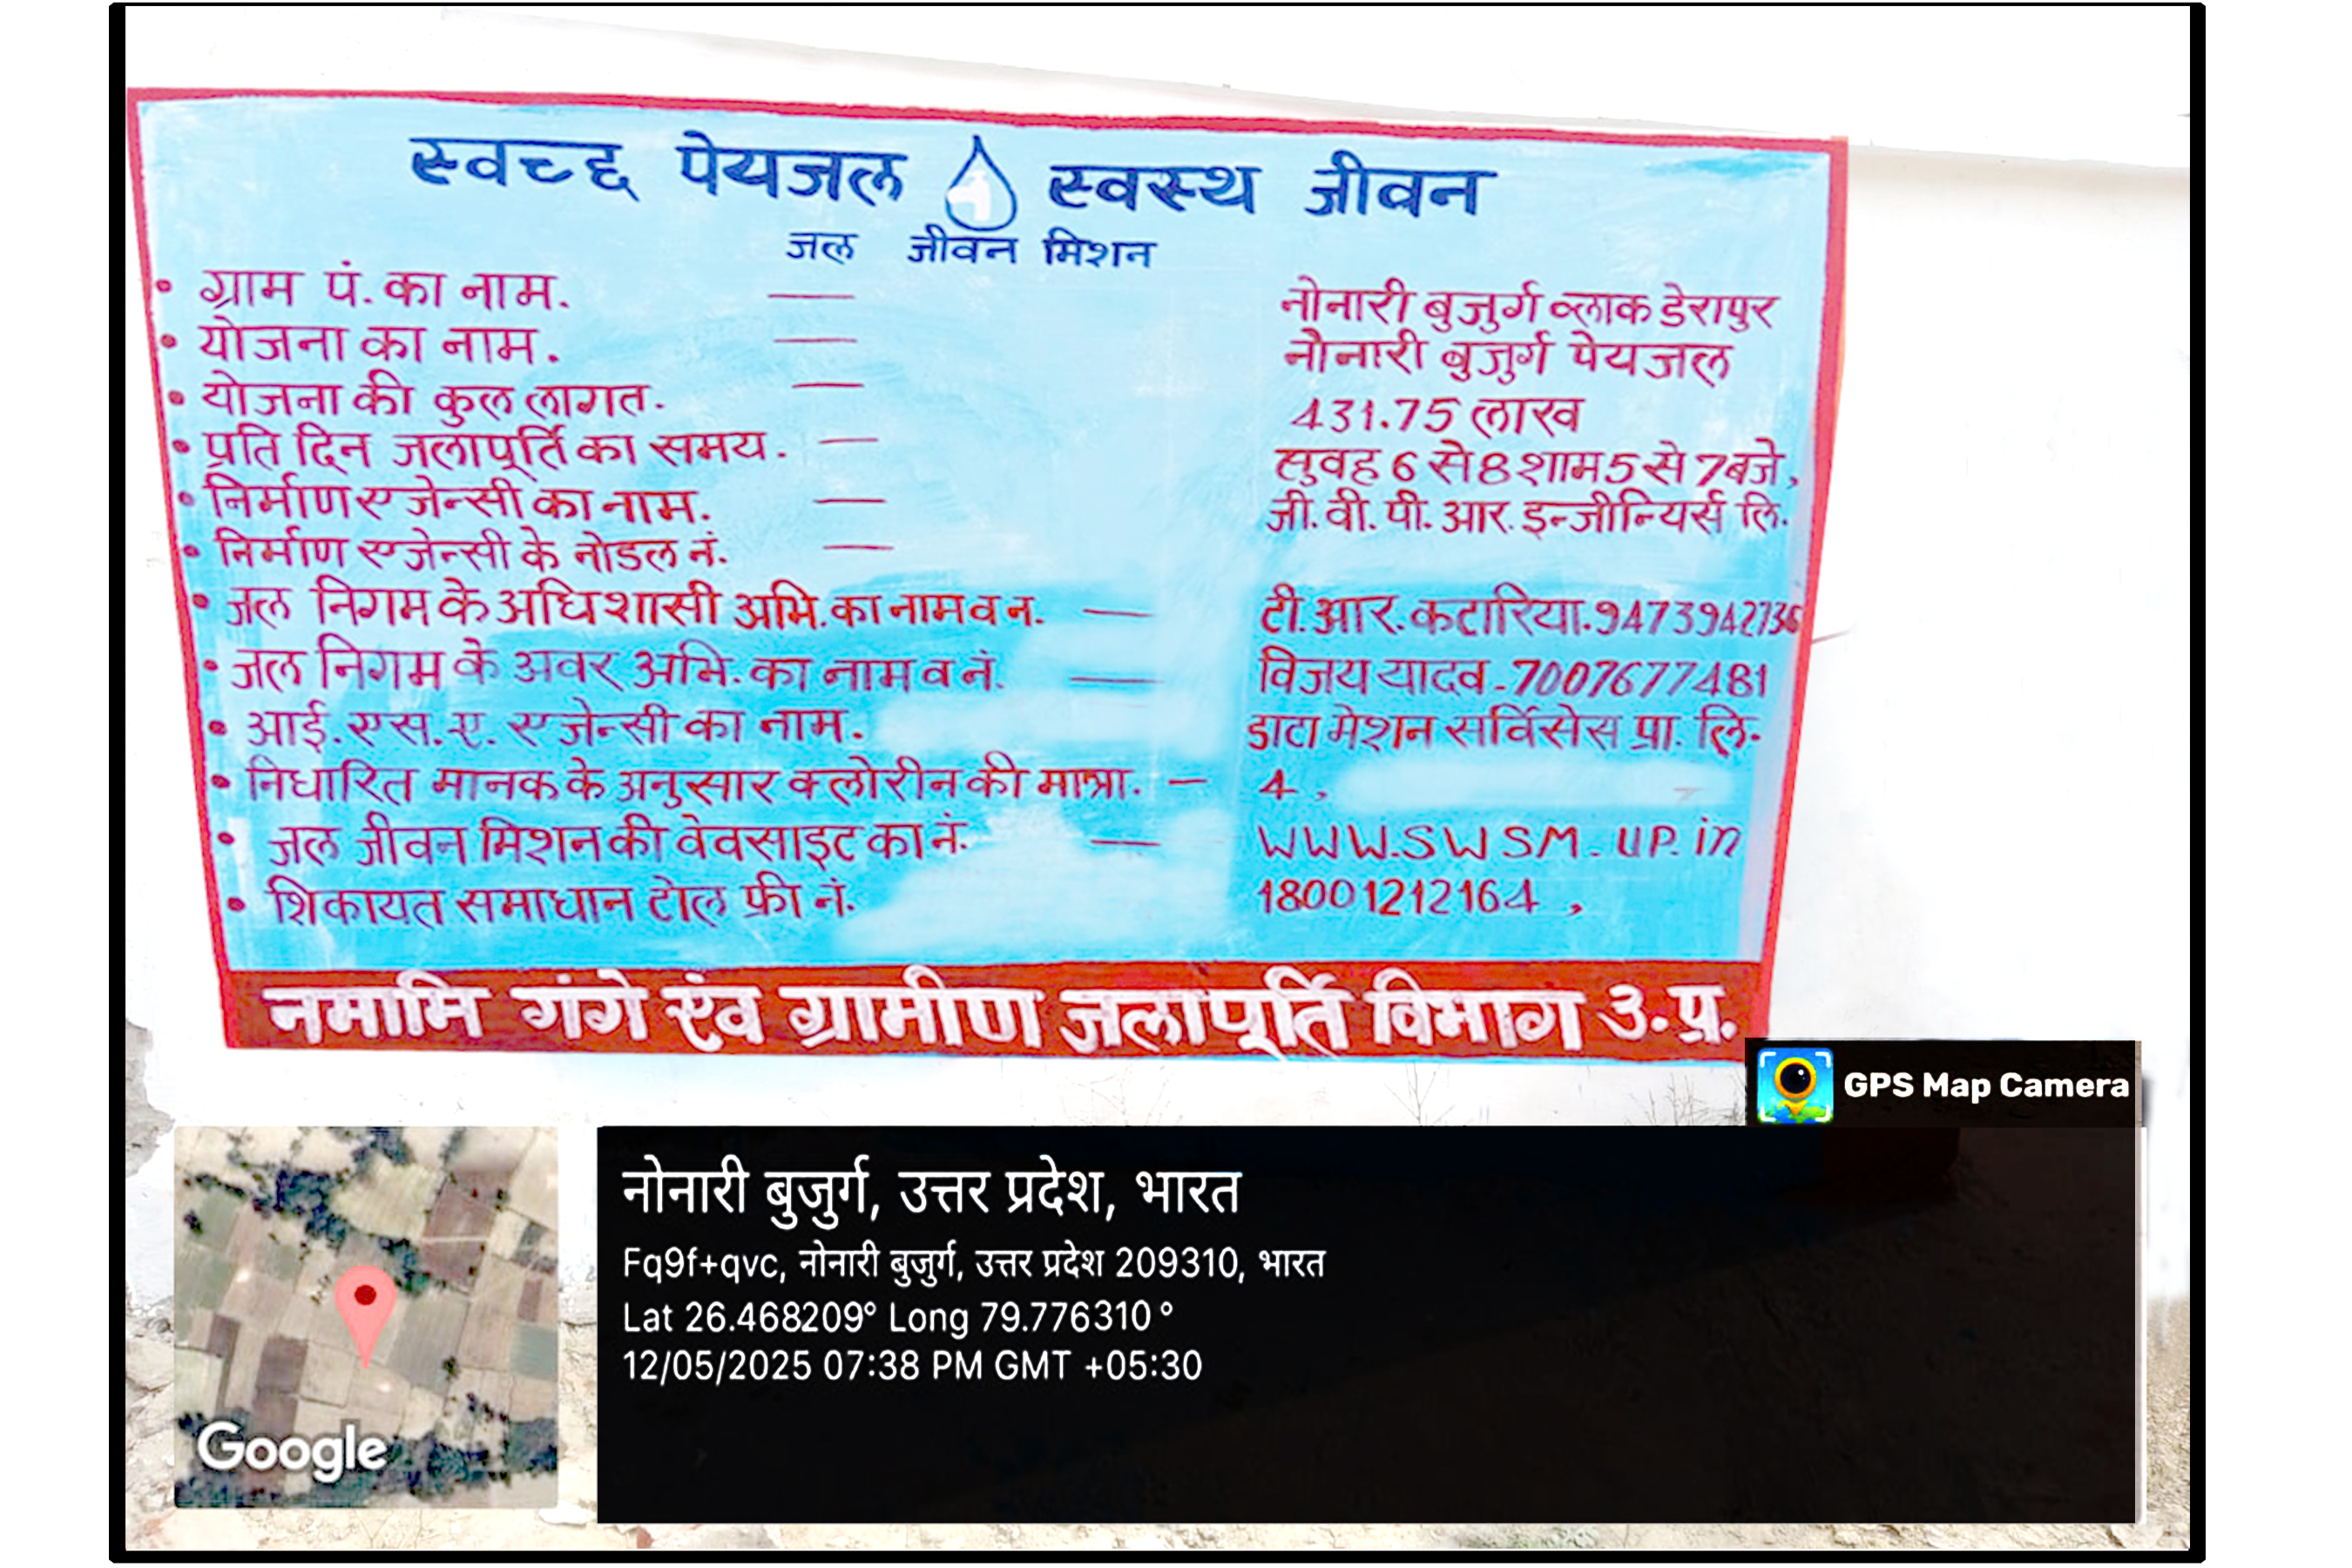 स्वच्छ पेयजल स्वस्थ जीवन
जल जीवन मिशन
• ग्राम पं. का नाम. — नोनारी बुजुर्ग ब्लाक डेरापुर
• योजना का नाम. — नौनारी बुजुर्ग पेयजल
• योजना की कुल लागत. — 431.75 लाख
• प्रति दिन जलापूर्ति का समय. — सुवह 6 से 8 शाम 5 से 7 बजे,
• निर्माण एजेन्सी का नाम. — जी. वी. पी. आर. इन्जीनियर्स लि.
• निर्माण एजेन्सी के नोडल नं. —
• जल निगम के अधिशासी अभि. का नाम व न. — टी. आर. कटारिया. 9473942736
• जल निगम के अवर अभि. का नाम व नं. — विजय यादव - 7007677481
• आई. एस. ए. एजेन्सी का नाम. डाटा मेशन सर्विसेस प्रा. लि-
• निधारित मानक के अनुसार क्लोरीन की मात्रा. — 4 ,
• जल जीवन मिशन की वेवसाइट का नं. — WWW.SWSM-UP.in
• शिकायत समाधान टोल फ्री नं. 18001212164 ,
नमामि गंगे एंव ग्रामीण जलापूर्ति विभाग उ.प्र.
GPS Map Camera
नोनारी बुजुर्ग, उत्तर प्रदेश, भारत
Fq9f+qvc, नोनारी बुजुर्ग, उत्तर प्रदेश 209310, भारत
Lat 26.468209° Long 79.776310°
12/05/2025 07:38 PM GMT +05:30
Google